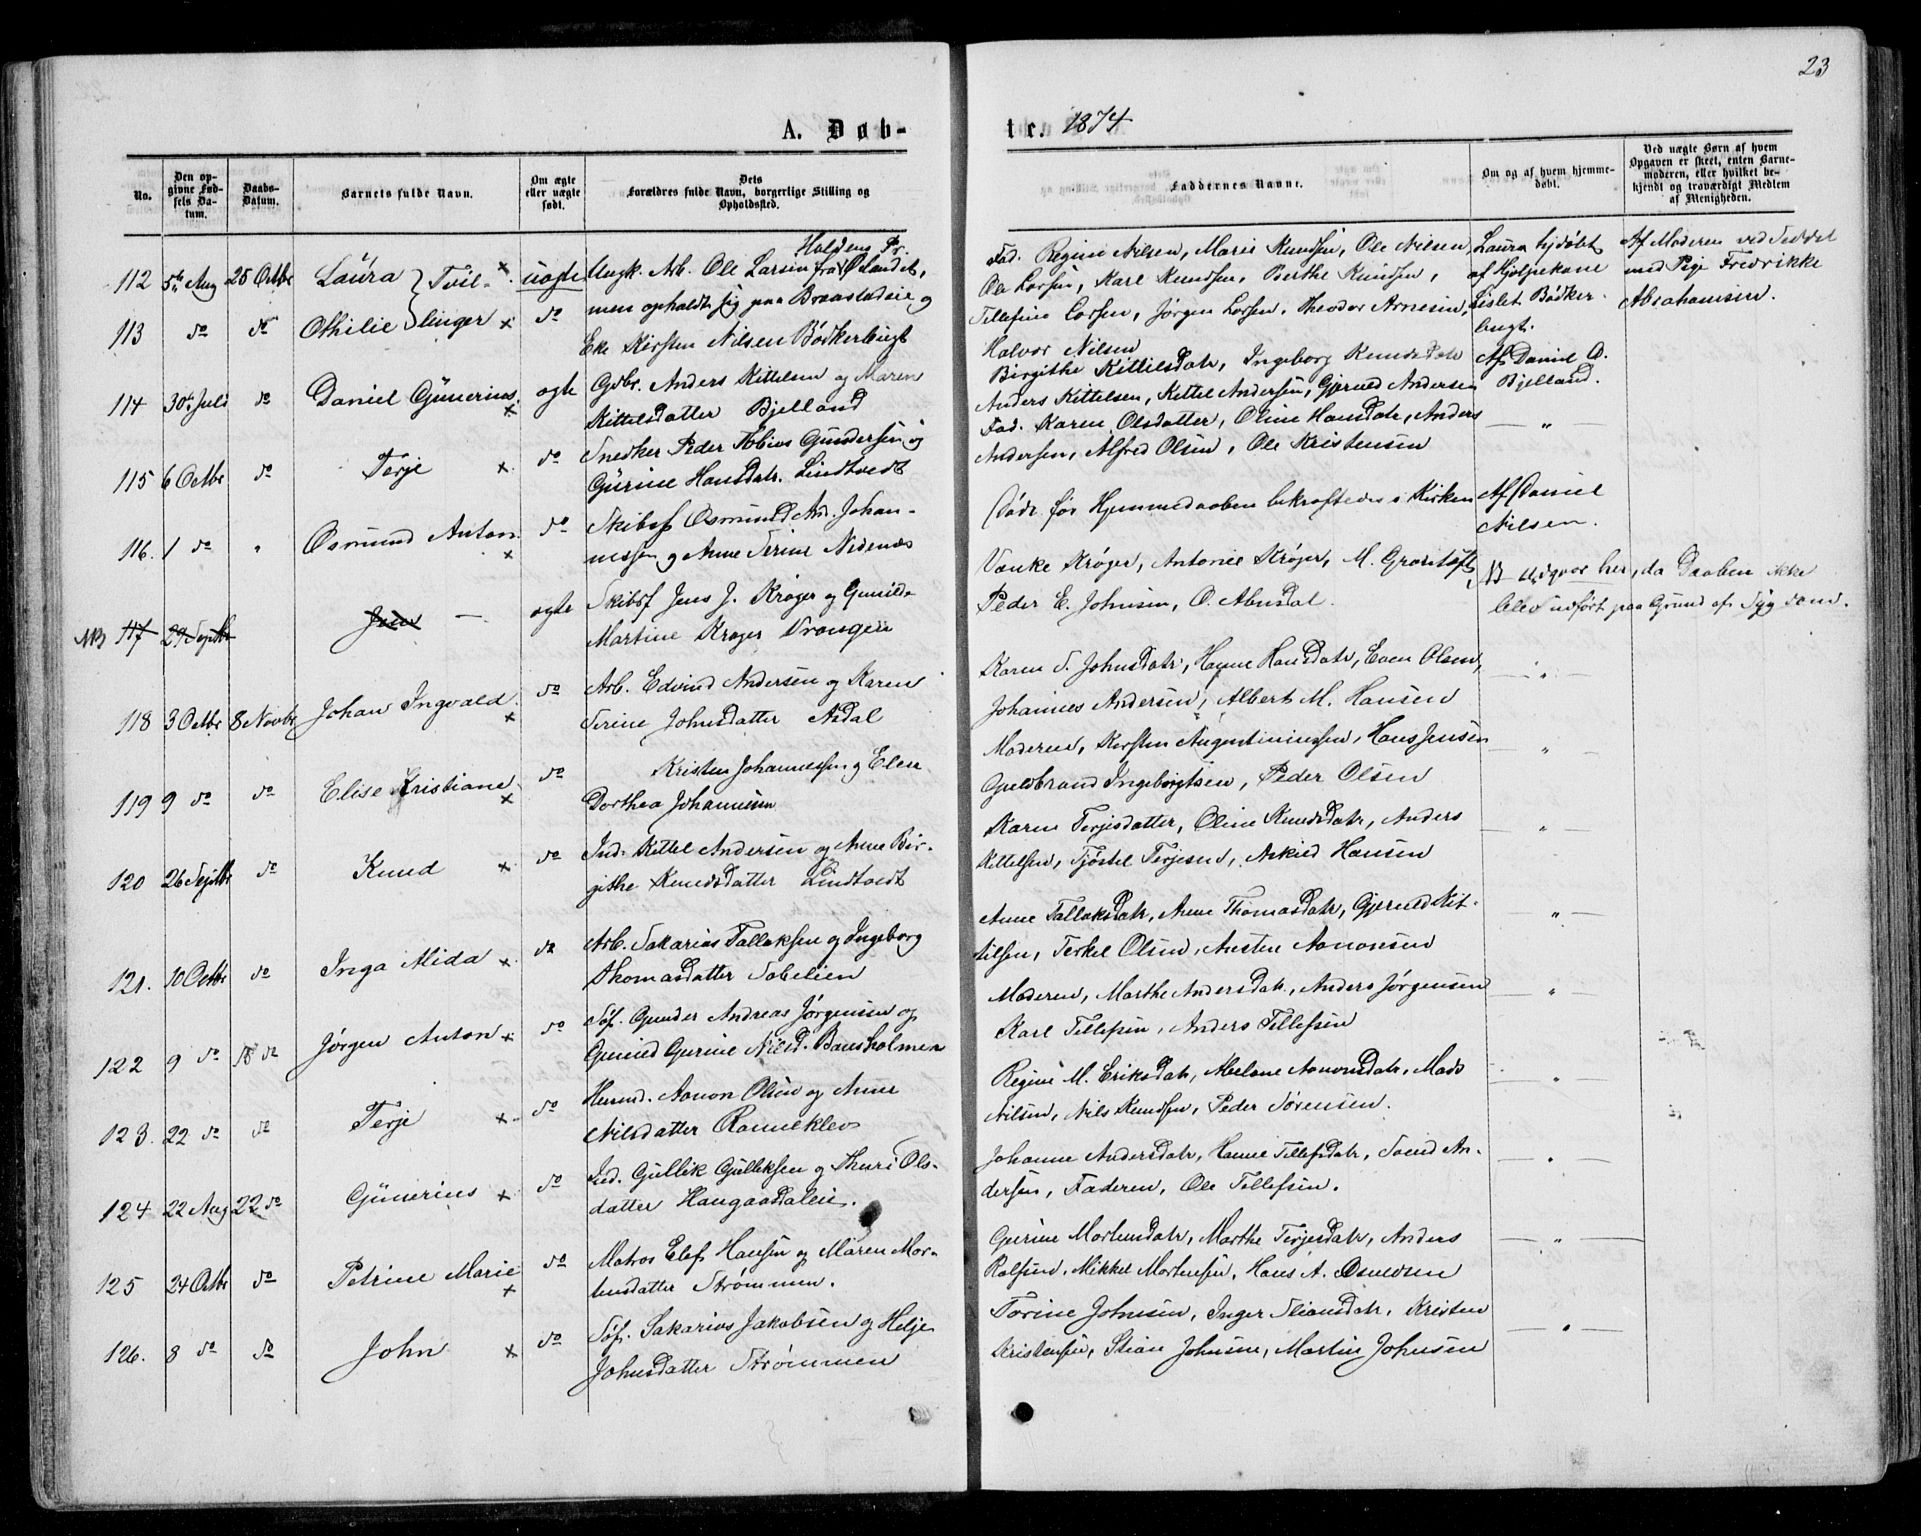 23
A. Døb-
te. 1874
No.
Den op-
givne Fød-
sels Da-
tum.
Daabs-
Datum.
Barnets fulde Navn.
Om ægte
eller uægte
født.
Dets
Forældres fulde Navn, borgerlige Stilling og
Opholdssted.
Faddernes Navne.
Om og af hvem hjemme-
døbt.
Ved uægte Børn af hvem
Opgaven er skeet, enten Barne-
moderen, eller hvilket be-
kjendt og troværdigt Medlem
af Menigheden.
112 5te Aug 25 Octbr Laura } Tvil- × uægte
Ungk. Arb. Ole Larsen fra Ø Landet,
men opholdt sig paa Braastadeie og
Fad. Regine Nilsen, Maren Knudsen, Ole Nilsen
Ole Larsen, Karl Knudsen, Berthe Knudsen,
Laura hjdøbt
af Hjelpekone
Lislet Bødker-
bugt.
Af Moderen ved Seddel
med Pige Fredrikke
Abrahamsen.
113 do do Othilie } linger × do
Eke Kirsten Nilsen Bødkerbugt
Tellefine Larsen, Jørgen Larsen, Theodor Arnesen,
Halvor Nilsen
114 30te Juli do Daniel Gunerius × ægte
Gdbr. Anders Kittelsen og Maren
Kittelsdatter Bjelland
Birgithe Kittilsdatr, Ingeborg Knudsdatr
Anders Kittelsen, Kittel Andersen, Gjeruld Andersen
Af Daniel O.
Bjelland.
115 6 Octbr do Terje × do
Snedker Peder Tobias Gundersen og
Gurine Hansdatr. Lindtvedt
Fad. Karen Olsdatter, Oline Hansdatr, Anders
Andersen, Alfred Olsen, Ole Kristensen
— " —
116. 1 do " Osmund Anton × do
Skibsf Osmund And. Johan-
nessen og Anne Serine Nedenæs
Død før Hjemmedaaben bekræftedes i Kirken
Af Daniel
Nilsen.
NB 117 29 Septbr Jens — ægte
Skibsf Jens J. Krøger og Gunild
Martine Krøger Vrangen
Venke Krøger, Antonie Krøger, M.
Peder E. Johnsen, O. Abusdal.
NB Udgaar her, da Daaben ikke
blev udført paa Grund af Sygdom.
118 3 Octbr 8 Novbr Johan Ingvald × do
Arb. Edvind Andersen og Karen
Serine Johnsdatter Asdal
Karen S. Johnsdatr, Hanne Hansdatr, Even Olsen,
Johannes Andersen, Albert M. Hansen
— " —
119 9 do do Elise Kristiane × do
Kristen Johannessen og Elen
Dorthea Johannesen
Moderen, Kirsten Augentinussen, Hans Jensen
Guldbrand Ingebrigtsen, Peder Olsen
" —
120 26 Septbr do Knud × do
Ind. Kittel Andersen og Anne Bir-
githe Knudsdatter Lindtvedt
Karen Terjesdatter, Oline Knudsdatr, Anders
Kittelsen, Tjøstel Terjesen, Askild Hansen
— " —
121. 10 Octbr do Inga Alida × do
Arb. Sakarias Tallaksen og Ingeborg
Thomasdatter Sabelien
Anne Tallaksdatr, Anne Thomasdatr, Gjeruld Kit-
tilsen, Terkel Olsen, Austen Aanonsen
" —
122 9 do 15 do Jørgen Anton × do
Søf. Gunder Andreas Jørgensen og
Gunild Gurine Nilsd. Bansholmen
Moderen, Marthe Andersdatr., Anders Jørgensen
Karl Tellefsen, Anders Tellefsen
— " —
123. 22 do do Terje × do
Huusmd. Aanon Olsen og Anne
Nilsdatter Ranneklev
Regine M. Eriksdatr, Abelone Aanonsdatr, Mads
Nilsen, Nils Knudsen, Peder Sørensen.
— " —
124 22 Aug 22 do Gunerius × do
Ind. Gullik Gulliksen og Thuri Ols-
datter Haugaasdaleie.
Johanne Andersdatr, Hanne Tellefsdatr, Svend An-
dersen, Faderen, Ole Tellefsen.
— " —
125 24 Octbr do Petrine Marie × do
Matros Elef Hansen og Maren Mor-
tensdatter Strømmen.
Gurine Mortensdatr, Marthe Terjesdatr, Anders
Rolfsen, Mikkel Mortensen, Hans A. Osuldsen
— " —
126. 8 do do John × do
Søf. Sakarias Jakobsen og Helje
Johnsdatter Strømmen
Torine Johnsen, Inger Stiansdatr, Kristen
Kristensen, Stian Johnsen, Martin Johnsen
— " —